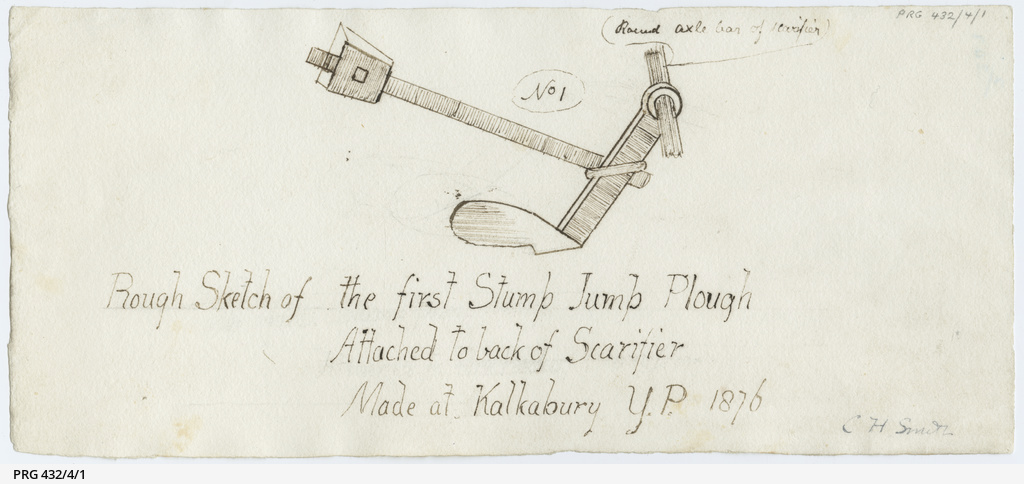 PRG 432/4/1
(Round axle bar of scarifier)
No 1
Rough Sketch of the first Stump Jump Plough
Attached to back of Scarifier
Made at Kalkabury Y.P. 1876
C H Smith
PRG 432/4/1